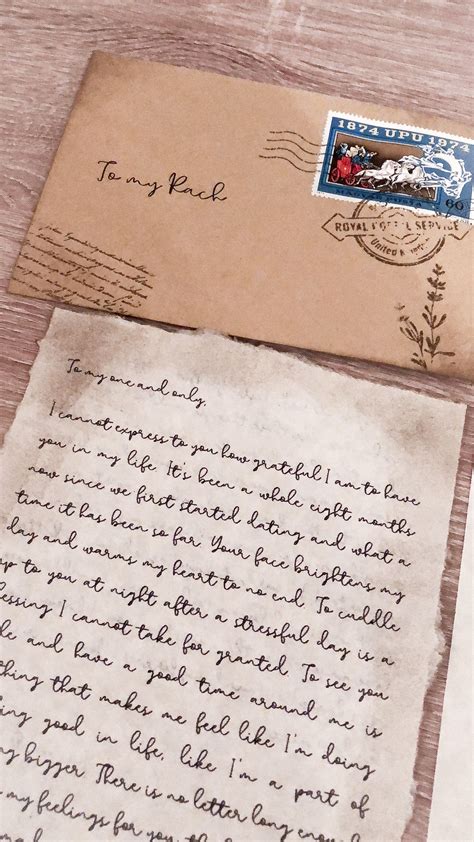 1874 UPU 1974
MAGYAR POSTA 60
To my Rach
ROYAL SERVICE
United
To my one and only,
I cannot express to you how grateful I am to have
you in my life. It's been a whole eight months
now since we first started dating and what a
time it has been so far. Your face brightens my
day and warms my heart to no end. To cuddle
up to you at night after a stressful day is a
essing I cannot take for granted. To see you
le and have a good time around me is
thing that makes me feel like I'm doing
ing good in life, like I'm a part of
ng bigger. There is no letter long enou
my feelings for you, of
mal